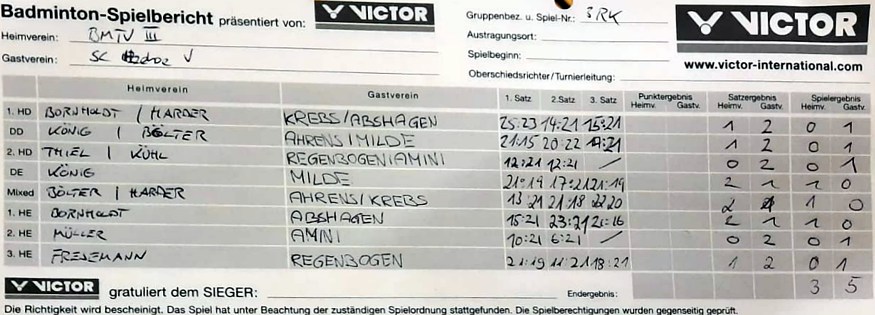 Badminton-Spielbericht präsentiert von: VICTOR Gruppenbez. u. Spiel-Nr.: 3RK VICTOR
Heimverein: BMTV III Austragungsort:
Gastverein: SC V Spielbeginn: www.victor-international.com
Oberschiedsrichter/Turnierleitung:
Heimverein Gastverein 1. Satz 2.Satz 3. Satz Punktergebnis Heimv. Gastv. Satzergebnis Heimv. Gastv. Spielergebnis Heimv. Gastv.
1. HD BORNHOLDT / HARDER KREBS/ABSHAGEN 25:23 14:21 15:21 1 2 0 1
DD KÖNIG / BÖLTER AHRENS/MILDE 21:15 20:22 1 2 0 1
2. HD THIEL / KÜHL REGENBOGEN/AMINI 12:21 12:21 / 0 2 0 1
DE KÖNIG MILDE 21:19 17:21 21:19 2 1 1 0
Mixed BÖLTER / HARDER AHRENS/KREBS 13:21 21:18 22:20 2 1 1 0
1. HE BORNHOLDT ABSHAGEN 15:21 23:21 21:16 2 1 1 0
2. HE MÜLLER AMINI 10:21 6:21 / 0 2 0 1
3. HE FRESEMANN REGENBOGEN 21:19 11:21 18:21 1 2 0 1
VICTOR gratuliert dem SIEGER: Endergebnis: 3 5
Die Richtigkeit wird bescheinigt. Das Spiel hat unter Beachtung der zuständigen Spielordnung stattgefunden. Die Spielberechtigungen wurden gegenseitig geprüft.